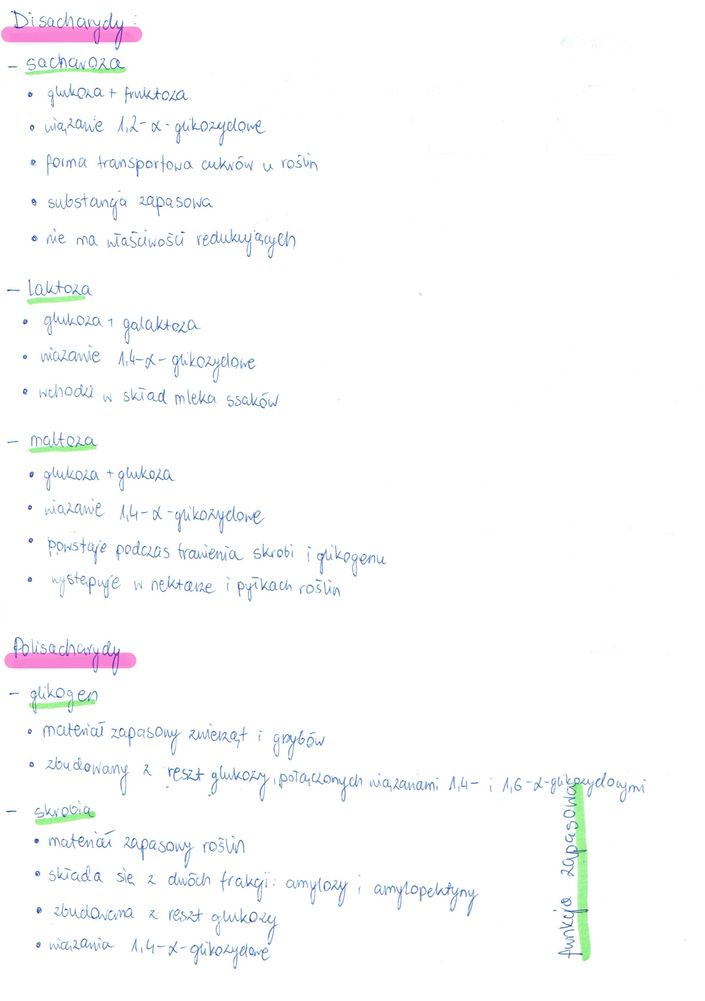 Disacharydy:
- sacharoza
• glukoza + fruktoza
• wiązanie 1,2-α-glikozydowe
• forma transportowa cukrów u roślin
• substancja zapasowa
• nie ma właściwości redukujących
- laktoza
• glukoza + galaktoza
• wiązanie 1,4-α-glikozydowe
• wchodzi w skład mleka ssaków
- maltoza
• glukoza + glukoza
• wiązanie 1,4-α-glikozydowe
• powstaje podczas trawienia skrobi i glikogenu
• występuje w nektarze i pyłkach roślin
Polisacharydy
- glikogen
• materiał zapasowy zwierząt i grzybów
• zbudowany z reszt glukozy, połączonych wiązaniami 1,4- i 1,6-α-glikozydowymi
- skrobia
• materiał zapasowy roślin
• składa się z dwóch frakcji: amylozy i amylopektyny
• zbudowana z reszt glukozy
• wiązania 1,4-α-glikozydowe
funkcja zapasowa